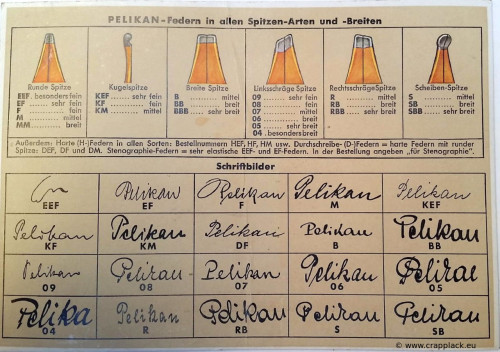 PELIKAN-Federn in allen Spitzen-Arten und -Breiten
Runde Spitze
EEF. besonders fein
EF ........ sehr fein
F ................ fein
M ............ mittel
MM
Kugelspitze
KEF .... sehr fein
KF ............ fein
KM ........ mittel
Breite Spitze
B ............ mittel
BB ............ breit
BBB .... sehr breit
Linksschräge Spitze
09 ........ sehr fein
08 ................ fein
07 ............ mittel
06 ............ breit
05 ........ sehr breit
04 .besonders breit
Rechtsschräge Spitze
R ............ mittel
RB ............ breit
RBB .... sehr breit
Scheiben-Spitze
S ............ mittel
SB ............ breit
SBB .... sehr breit
Außerdem: Harte (H-)Federn in allen Sorten: Bestellnummern HEF, HF, HM usw. Durchschreibe-(D-)Federn = harte Federn mit runder
Spitze: DEF, DF und DM. Stenographie-Federn = sehr elastische EEF- und EF-Federn. In der Bestellung angeben „für Stenographie".
Schriftbilder
Pelikan Pelikan Pelikan Pelikan
EEF EF F M KEF
Pelikan Pelikan Pelikan Pelikan Pelikan
KF KM DF B BB
Pelikan Pelikan Pelikan Pelikan Pelikan
09 08 07 06 05
Pelika Pelikan Pelikan Pelikan Pelikan
04 R RB S SB
© www.crapplack.eu